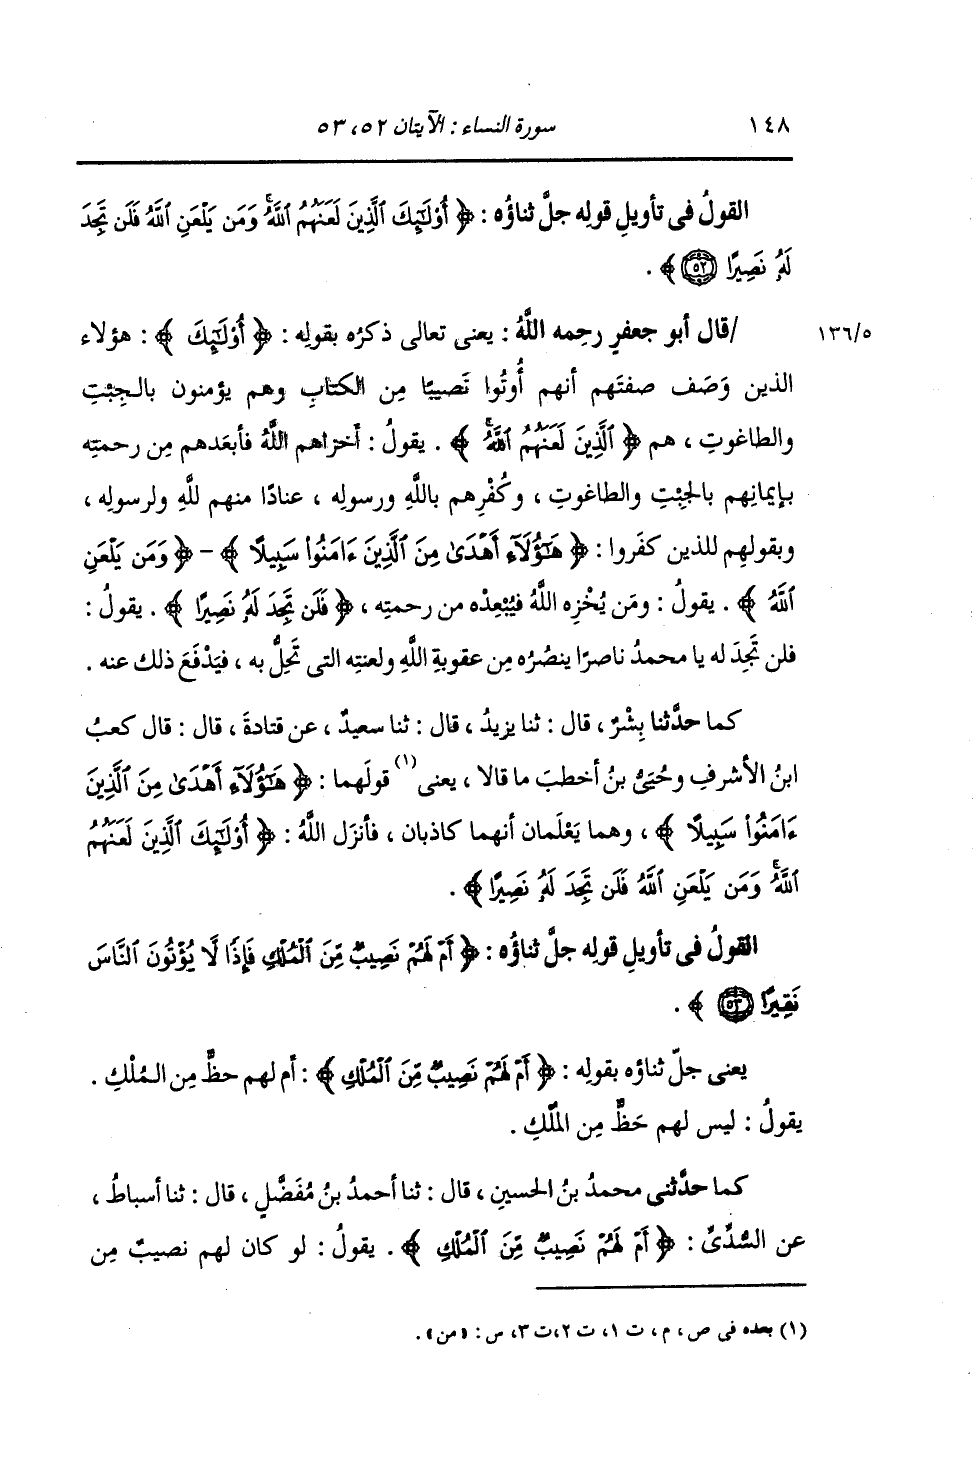 ١٤٨ سورة النساء : الآيتان ٥٢، ٥٣
القولُ فى تأويلِ قولِه جلَّ ثناؤُه : ﴿ أُوْلَٰٓئِكَ ٱلَّذِينَ لَعَنَهُمُ ٱللَّهُۖ وَمَن يَلْعَنِ ٱللَّهُ فَلَن تَجِدَ
لَهُۥ نَصِيرًا ۝٥٢ ﴾ .
١٣٦/٥ /قال أبو جعفرٍ رحِمه اللَّهُ : يعنى تعالى ذكرُه بقولِه : ﴿ أُوْلَٰٓئِكَ ﴾ : هؤلاء
الذين وَصَف صفتَهم أنهم أُوتُوا نَصيبًا مِن الكتابِ وهم يؤمنون بالجِبْتِ
والطاغوتِ ، هم ﴿ ٱلَّذِينَ لَعَنَهُمُ ٱللَّهُۖ ﴾ . يقولُ : أخزاهم اللَّهُ فأبعَدهم مِن رحمتِه
بإيمانِهم بالجِبْتِ والطاغوتِ ، وكُفْرِهم باللَّهِ ورسولِه ، عنادًا منهم للَّهِ ولرسولِه ،
وبقولِهم للذين كفَروا : ﴿ هَٰٓؤُلَآءِ أَهْدَىٰ مِنَ ٱلَّذِينَ ءَامَنُواْ سَبِيلًا ﴾ – ﴿ وَمَن يَلْعَنِ
ٱللَّهُ ﴾ . يقولُ : ومَن يُخْزِه اللَّهُ فيُبْعِدْه من رحمتِه ، ﴿ فَلَن تَجِدَ لَهُۥ نَصِيرًا ﴾ . يقولُ :
فلن تَجِدَ له يا محمدُ ناصرًا ينصُرُه مِن عقوبةِ اللَّهِ ولعنتِه التى تَحِلُّ به ، فيَدْفَعَ ذلك عنه .
كما حدَّثنا بِشْرٌ ، قال : ثنا يزيدُ ، قال : ثنا سعيدٌ ، عن قتادةَ ، قال : قال كعبُ
ابنُ الأشرفِ وحُيَىُّ بنُ أخطبَ ما قالا ، يعنى(١) قولَهما : ﴿ هَٰٓؤُلَآءِ أَهْدَىٰ مِنَ ٱلَّذِينَ
ءَامَنُواْ سَبِيلًا ﴾ ، وهما يَعْلَمان أنهما كاذبان ، فأنزَل اللَّهُ : ﴿ أُوْلَٰٓئِكَ ٱلَّذِينَ لَعَنَهُمُ
ٱللَّهُۖ وَمَن يَلْعَنِ ٱللَّهُ فَلَن تَجِدَ لَهُۥ نَصِيرًا ﴾ .
القولُ فى تأويلِ قولِه جلَّ ثناؤُه : ﴿ أَمْ لَهُمْ نَصِيبٌ مِّنَ ٱلْمُلْكِ فَإِذًا لَّا يُؤْتُونَ ٱلنَّاسَ
نَقِيرًا ۝٥٣ ﴾ .
يعنى جلّ ثناؤه بقولِه : ﴿ أَمْ لَهُمْ نَصِيبٌ مِّنَ ٱلْمُلْكِ ﴾ : أم لهم حظٌّ مِن المُلْكِ .
يقولُ : ليس لهم حَظٌّ مِن المُلْكِ .
كما حدَّثنى محمدُ بنُ الحسينِ ، قال : ثنا أحمدُ بنُ مُفَضَّلٍ ، قال : ثنا أسباطُ ،
عن السُّدِّىِّ : ﴿ أَمْ لَهُمْ نَصِيبٌ مِّنَ ٱلْمُلْكِ ﴾ . يقولُ : لو كان لهم نصيبٌ مِن
(١) بعده فى ص ، م ، ت ١، ت ٢، ت ٣، س : « من » .